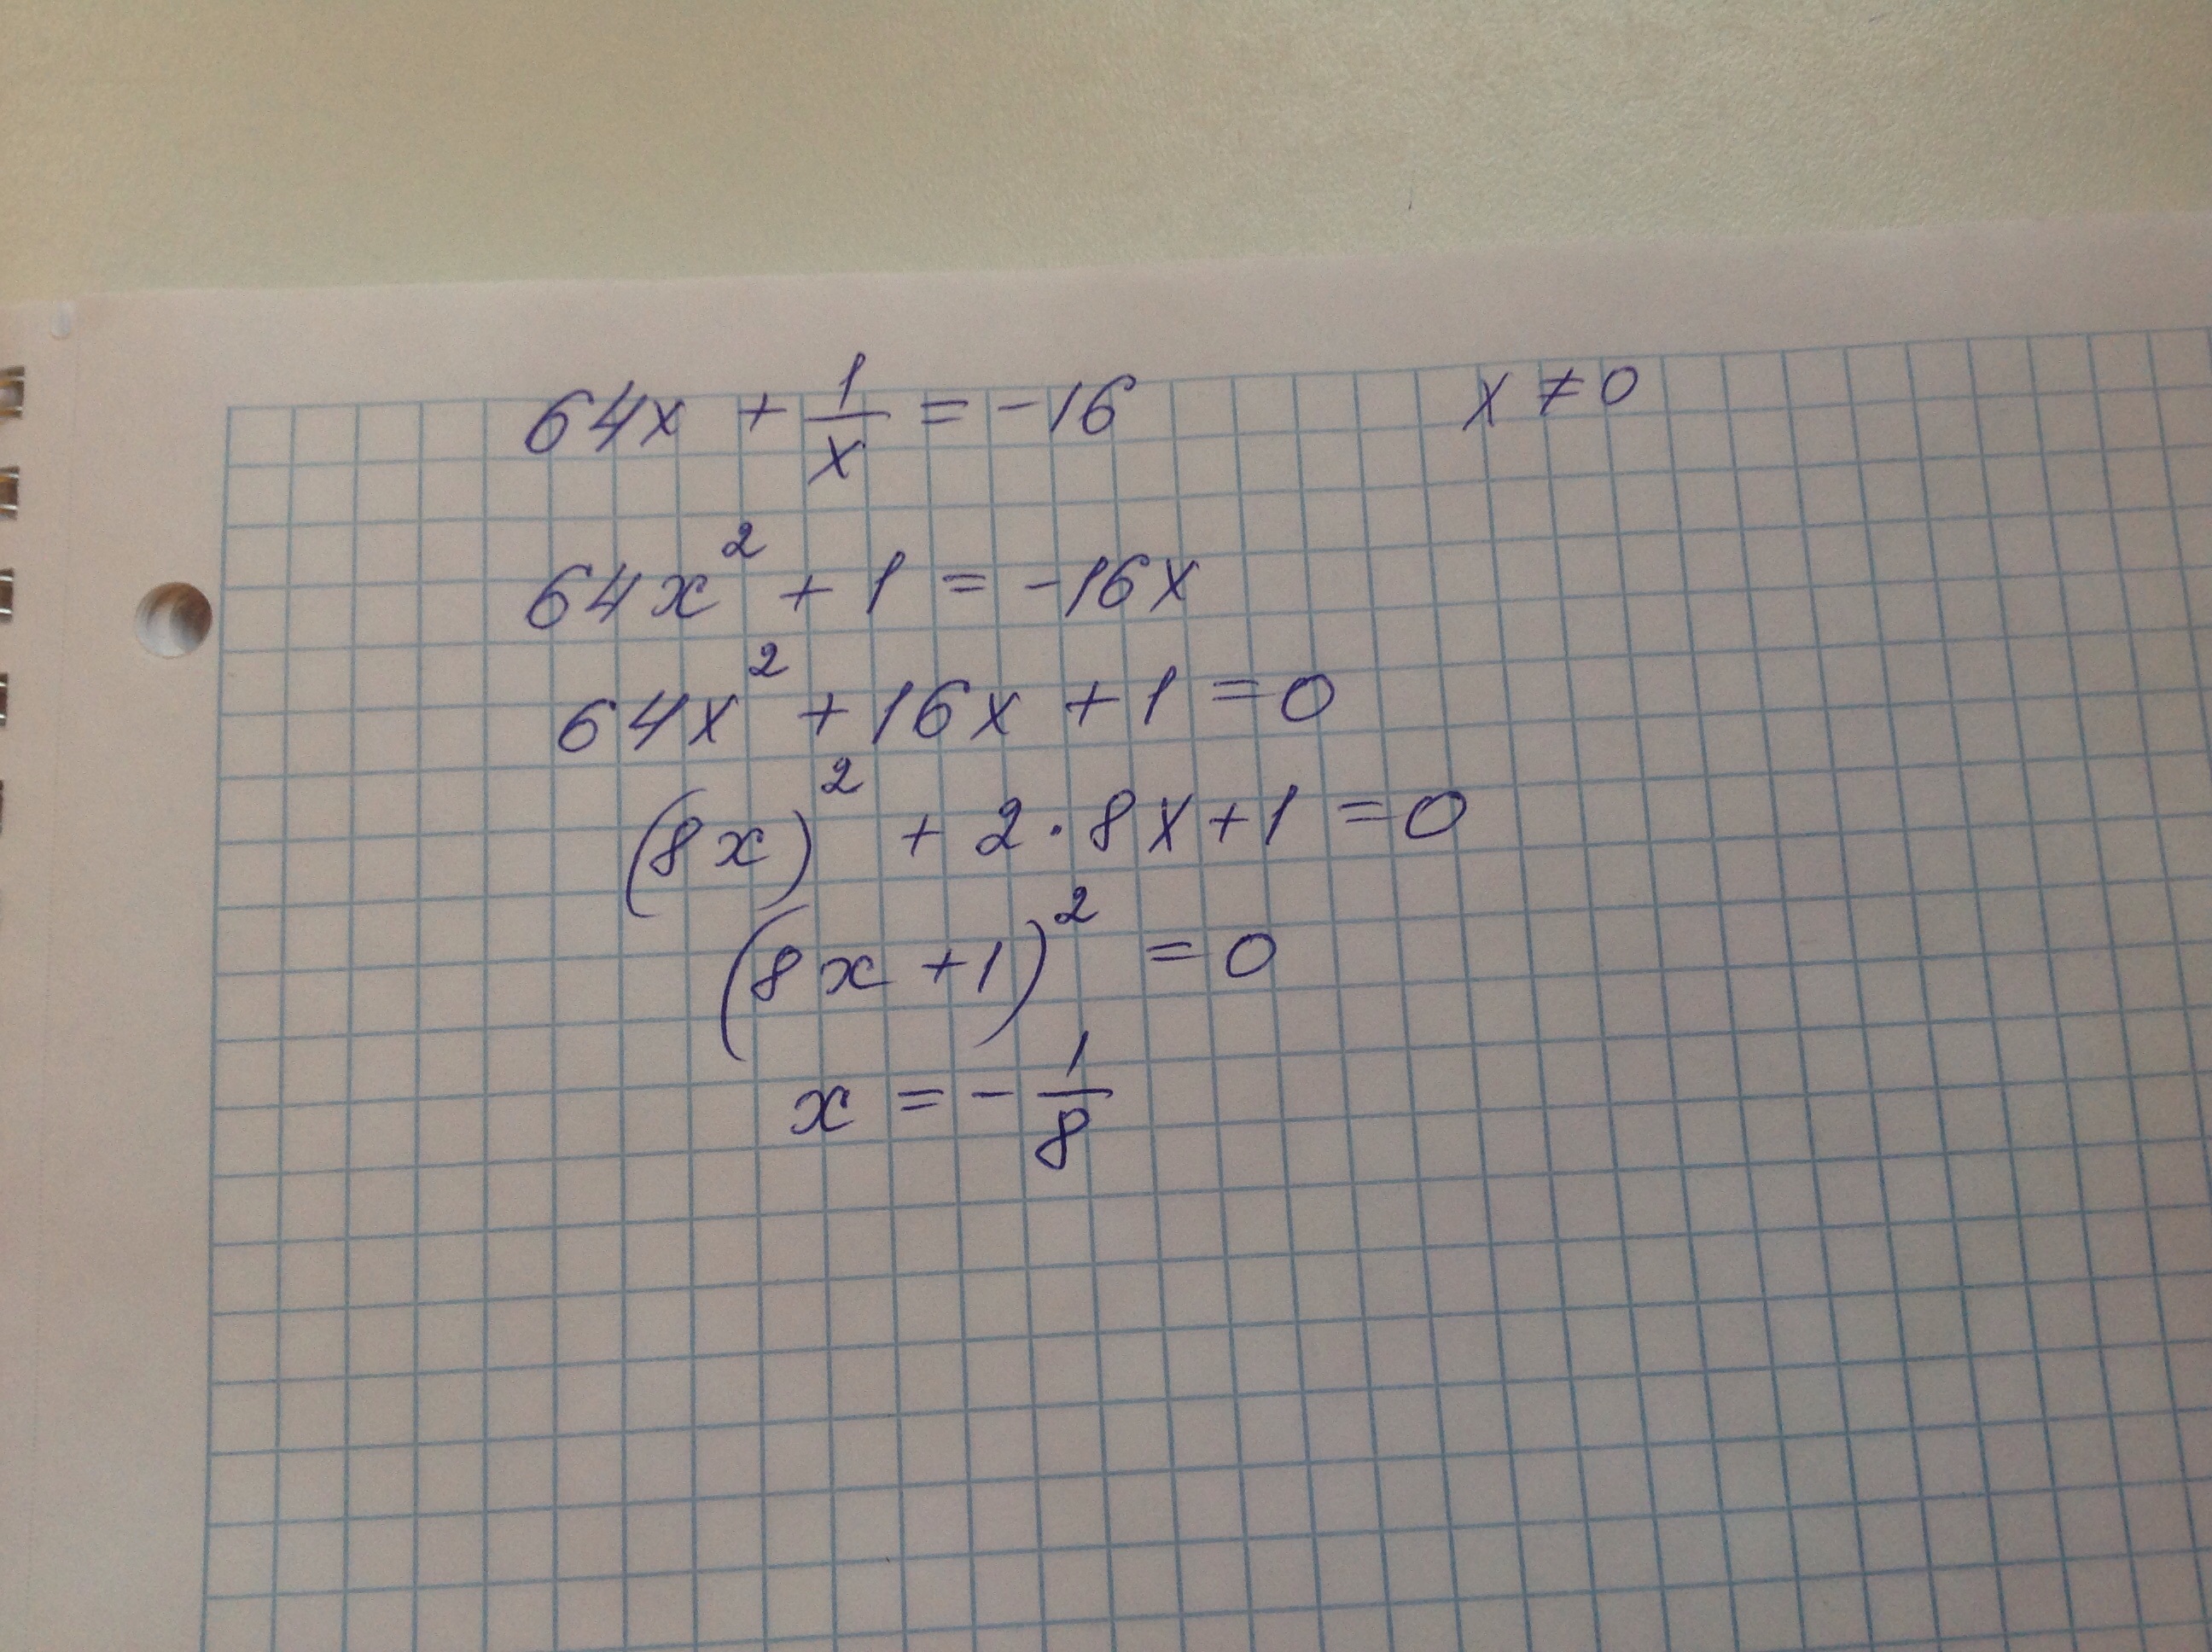 64x + 1/x = -16 x ≠ 0
64x² + 1 = -16x
64x² + 16x + 1 = 0
(8x)² + 2·8x + 1 = 0
(8x + 1)² = 0
x = - 1/8